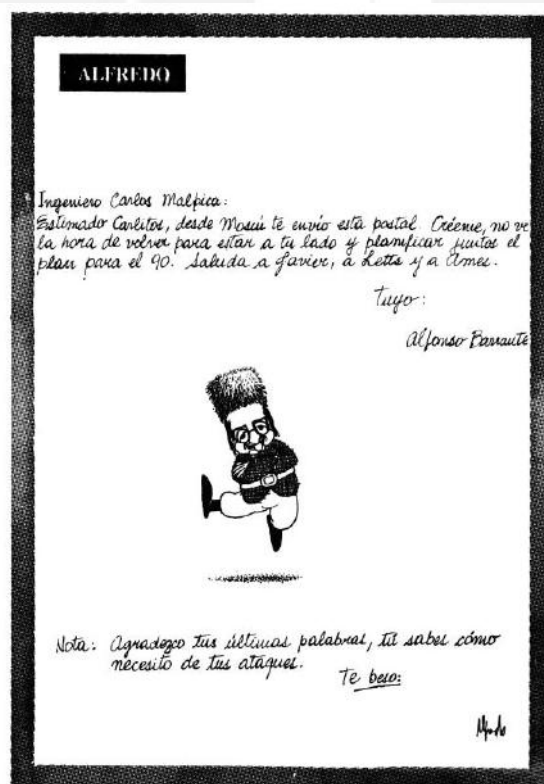 ALFREDO
Ingeniero Carlos Malpica:
Estimado Carlitos, desde Moscú te envío esta postal. Créeme, no ve
la hora de volver para estar a tu lado y planificar juntos el
plan para el 90. Saluda a Javier, a Letts y a Ames.
Tuyo:
Alfonso Barrante
Nota: Agradezco tus últimas palabras, tú sabes cómo
necesito de tus ataques.
Te beso: